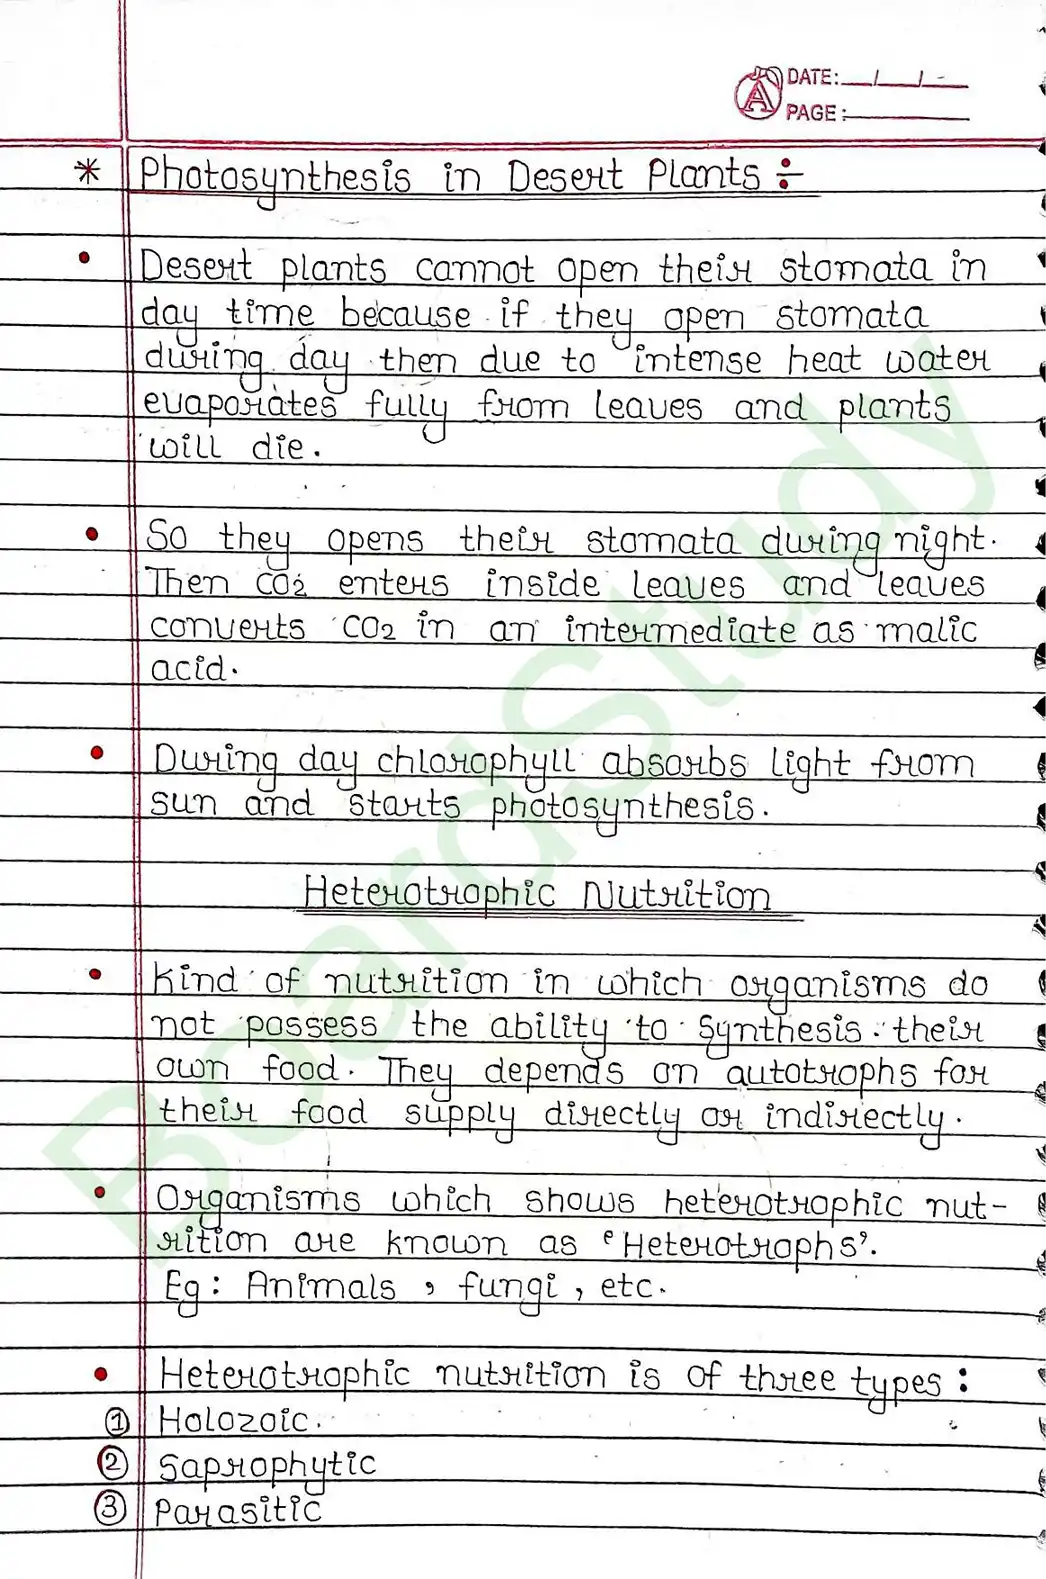 DATE: __/__/__
PAGE:
* Photosynthesis in Desert Plants ÷
• Desert plants cannot open their stomata in
day time because if they open stomata
during day then due to intense heat water
evaporates fully from leaves and plants
will die.
• So they opens their stomata during night.
Then CO2 enters inside leaves and leaves
converts CO2 in an intermediate as malic
acid.
• During day chlorophyll absorbs light from
sun and starts photosynthesis.
Heterotrophic Nutrition
• Kind of nutrition in which organisms do
not possess the ability to synthesis their
own food. They depends on autotrophs for
their food supply directly or indirectly.
• Organisms which shows heterotrophic nut-
rition are known as 'Heterotrophs'.
Eg: Animals, fungi, etc.
• Heterotrophic nutrition is of three types:
① Holozoic.
② Saprophytic
③ Parasitic
BoardStudy